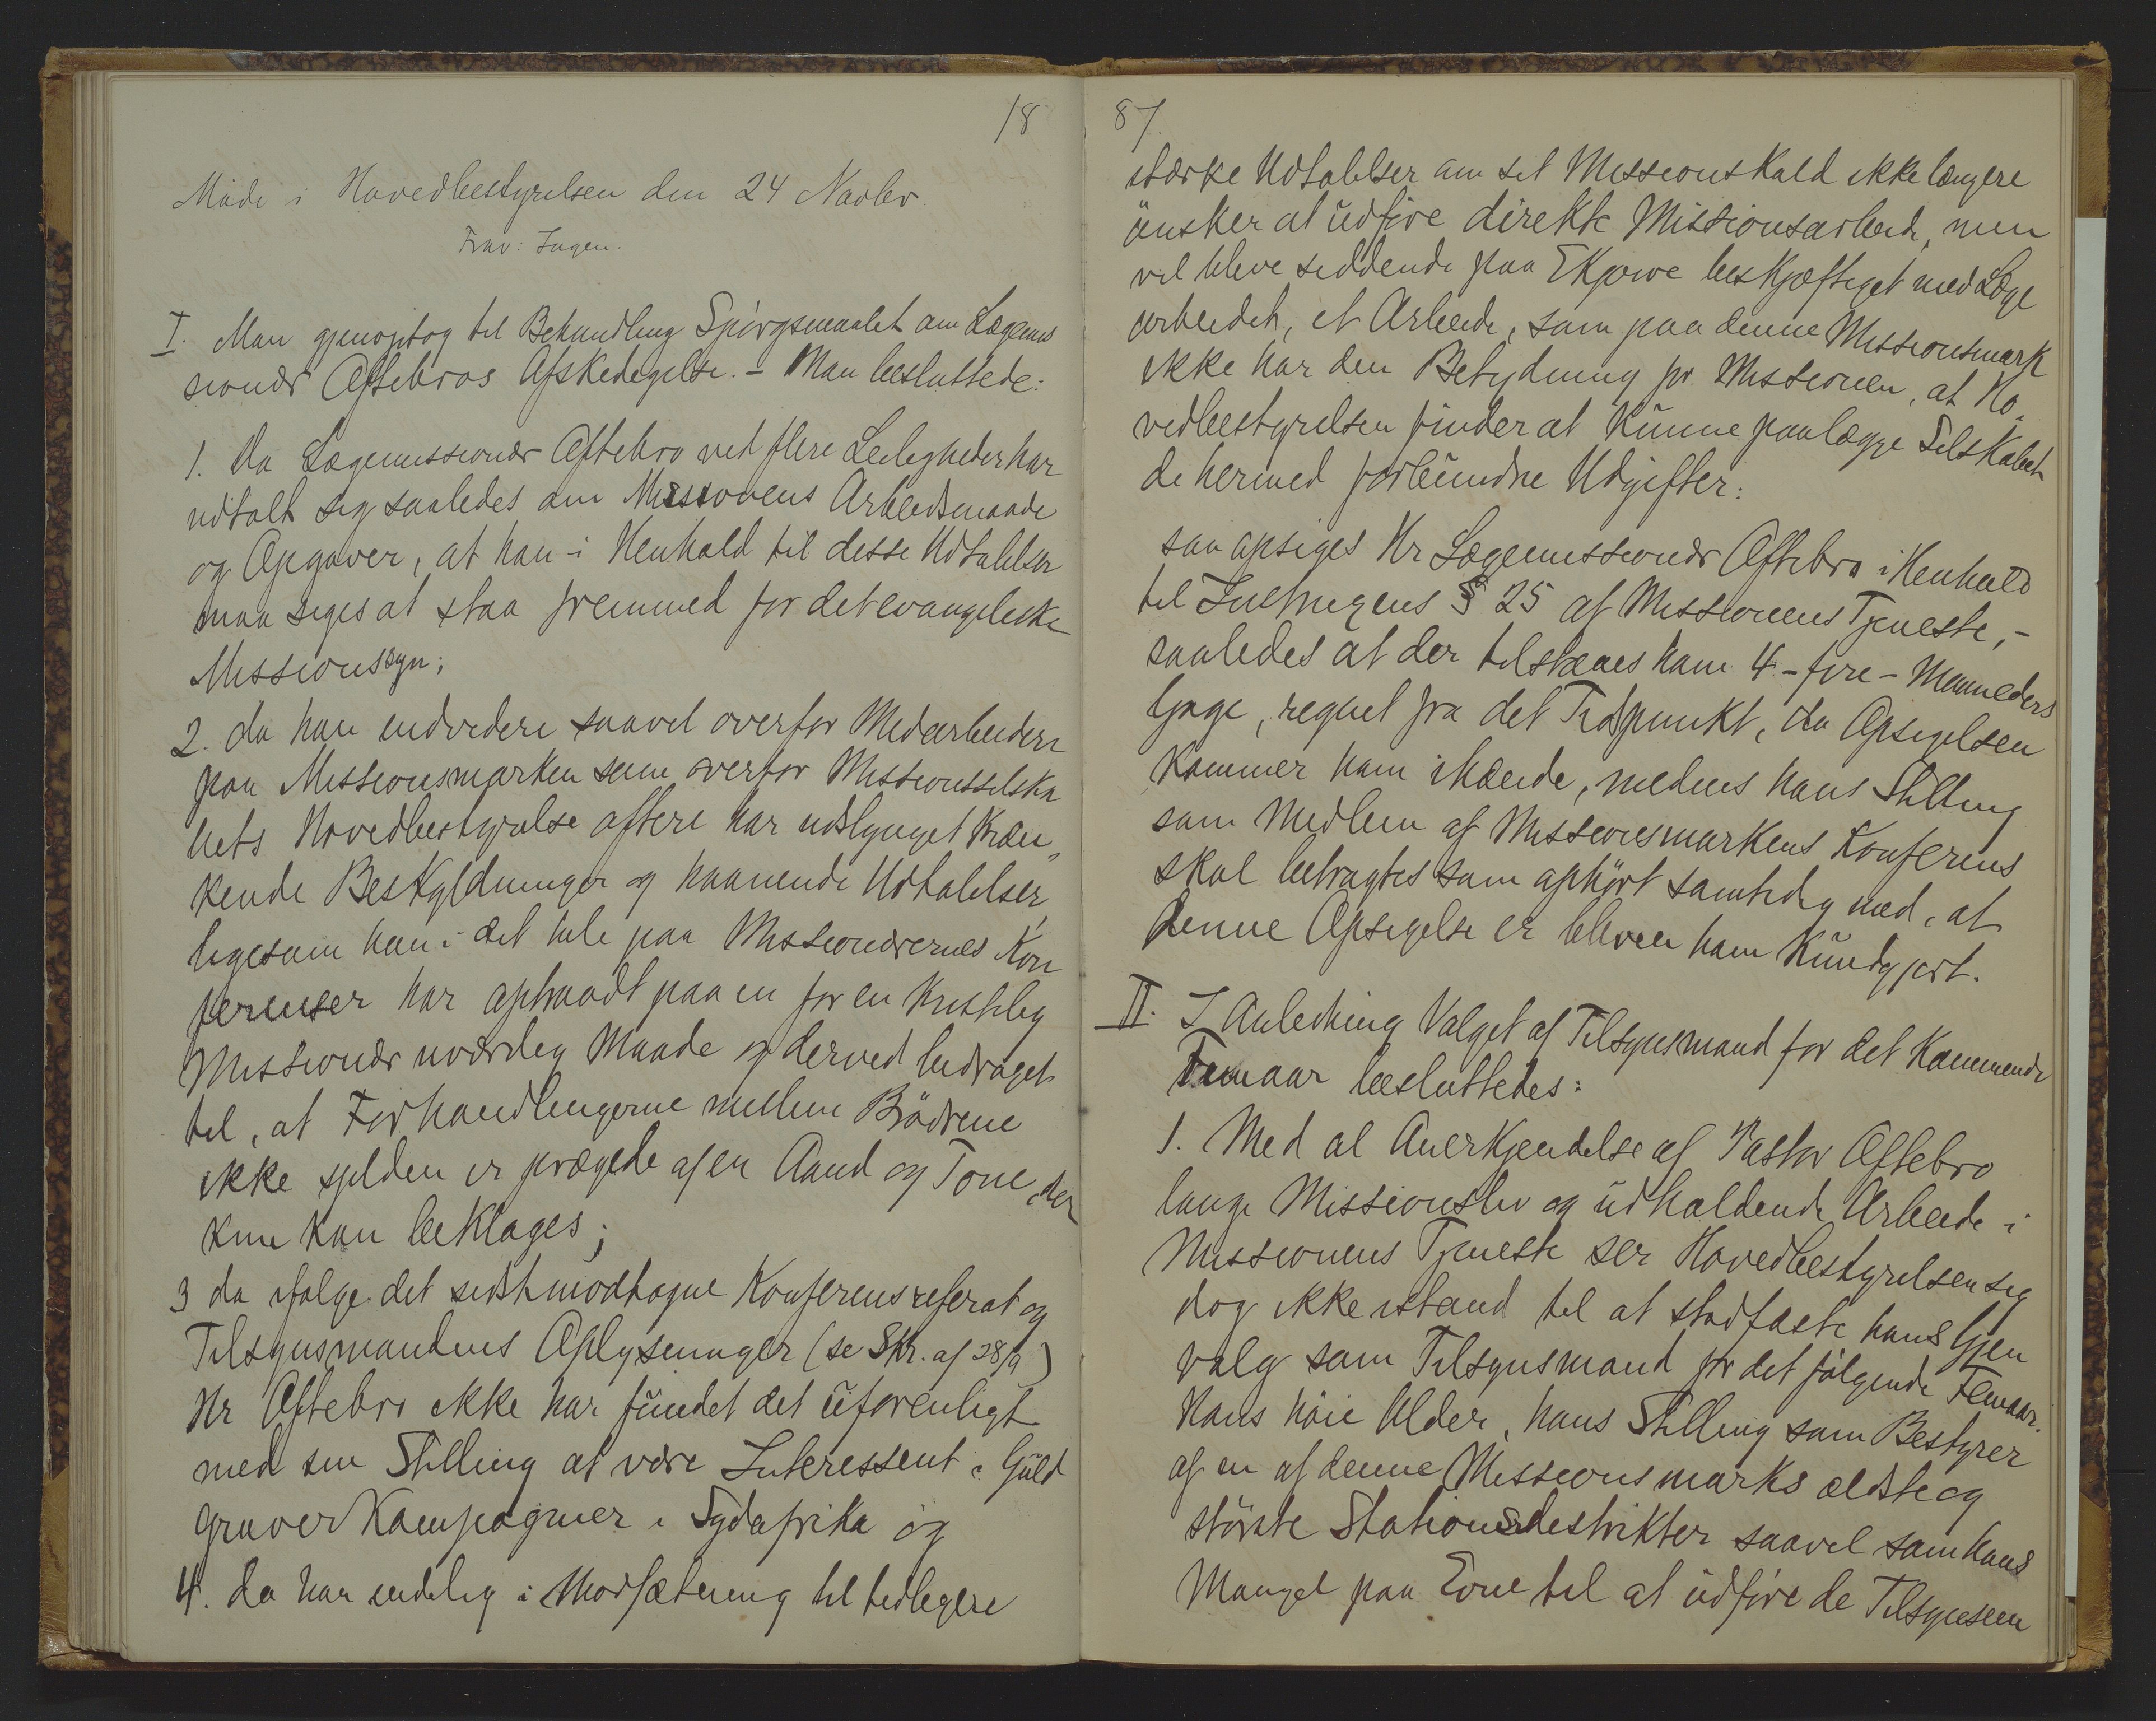 18
Møde i Hovedbestyrelsen den 24 Novbr.
Frav: Ingen.
I. Man gjenoptog til Behandling Spørgsmaalet om Lægemis
sionær Oftebros Afskedigelse. – Man besluttede:
1. Da Lægemissionær Oftebro ved flere Leiligheder har
udtalt sig saaledes om Missionens Arbeidsmaade
og Opgaver, at han i Henhold til desse Udtalelser
maa siges at staa fremmed for det evangeliske
Missionssyn;
2. da han endvidere saavel overfor Medarbeidere
paa Missionsmarken som overfor Missionsselska
bets Hovedbestyrelse oftere har udslynget kræn„
kende Beskyldninger og haanende Udtalelser,
ligesom han i det hele paa Missionærernes Kon
ferenser har optraadt paa en for en kristelig
Missionær uværdig Maade og derved bidraget
til, at Forhandlingerne mellem Brødrene
ikke sjelden er prægede af en Aand og Tone, der
kun kan beklages;
3 da ifølge det sidst modtagne Konferensreferat og
Tilsynsmandens Oplysninger (se Skr. af 28/9)
Hr Oftebro ikke har fundet det uforenligt
med sin Stilling at være Interessent i Guld
gruver Kompagnier i Sydafrika og
4. da han endelig i Modsætning til tidligere
87.
stærke Udtalelser om sit Missionskald ikke længere
ønsker at udføre direkte Missionsarbeide, men
vil blive siddende paa Ekjowe beskjæftiget med Læge
arbeidet, et Arbeide, som paa denne Missionsmark
ikke har den Betydning for Missionen, at Ho„
vedbestyrelsen finder at kunne paalægge Selskabet
de hermed forbundne Udgifter:
saa opsiges Hr Lægemissionær Oftebro i Henhold
til Instruxens § 25 af Missionens Tjeneste, –
saaledes at der tilstaaes ham 4 – fire – Maaneders
Gage, regnet fra det Tidspunkt, da Opsigelsen
kommer ham ihænde, medens hans Stilling
som Medlem af Missionsmarkens Konferens
skal betragtes som ophørt samtidig med, at
denne Opsigelse er bleven ham kundgjort.
II. I Anledning Valget af Tilsynsmand for det kommende
Femaar besluttedes:
1. Med al Anerkjendelse af Pastor Oftebro
lange Missionsliv og udholdende Arbeide i
Missionens Tjeneste ser Hovedbestyrelsen sig
dog ikke istand til at stadfæste hans Gjen
valg som Tilsynsmand for det følgende Femaar.
Hans høie Alder, hans Stilling som Bestyrer
af en af denne Missionsmarks ældste og
største Stationsdistrikter saavel som hans
Mangel paa Evne til at udføre de Tilsynsem